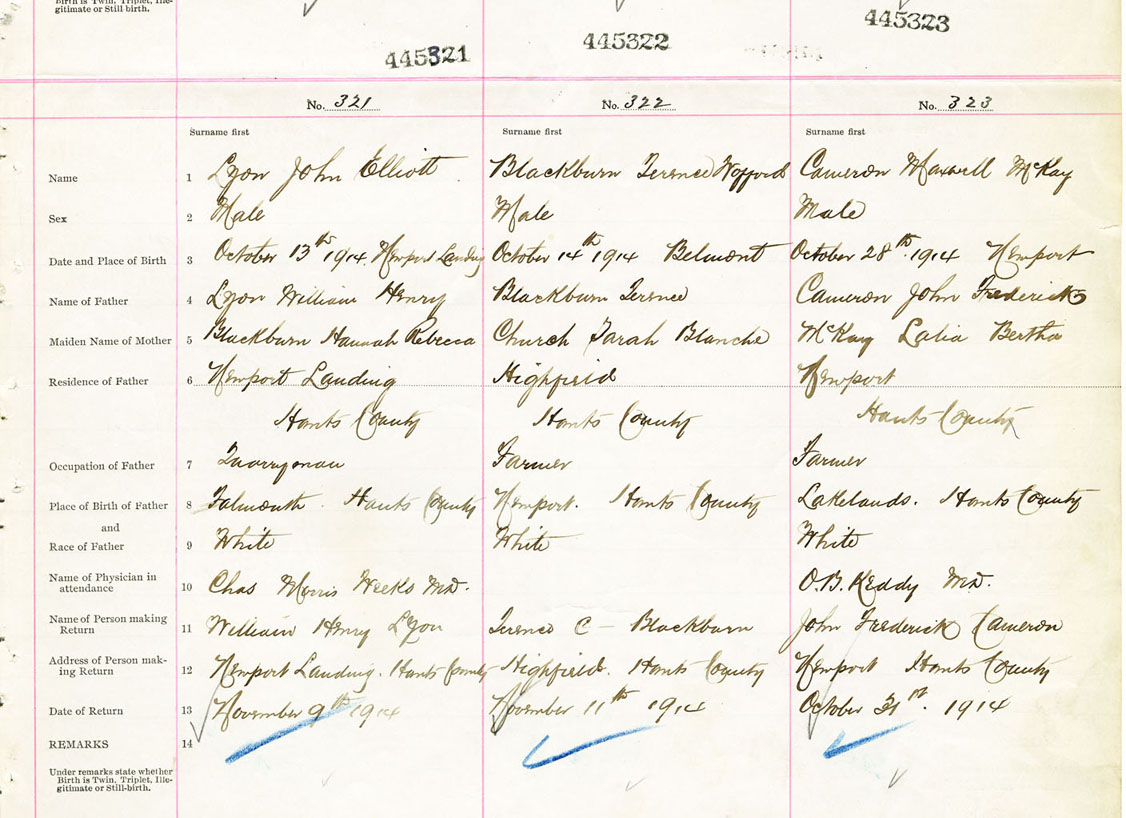 Birth is Twin, Triplet, Ille-
gitimate or Still birth.
445321 445322 445323
No. 321 No. 322 No. 323
Surname first Surname first Surname first
Name 1 Lyon John Elliott Blackburn Terence Wofford Cameron Maxwell McKay
Sex 2 Male Male Male
Date and Place of Birth 3 October 13th 1914. Newport Landing October 14th 1914 Belmont October 28th. 1914 Newport
Name of Father 4 Lyon William Henry Blackburn Terence Cameron John Frederick
Maiden Name of Mother 5 Blackburn Hannah Rebecca Church Sarah Blanche McKay Lalia Bertha
Residence of Father 6 Newport Landing Highfield Newport
Hants County Hants County Hants County
Occupation of Father 7 Quarryman Farmer Farmer
Place of Birth of Father 8 Falmouth. Hants County Newport. Hants County Lakelands. Hants County
and
Race of Father 9 White White White
Name of Physician in
attendance 10 Chas Morris Weeks MD. O.B. Keddy MD.
Name of Person making
Return 11 William Henry Lyon Terence C - Blackburn John Frederick Cameron
Address of Person mak-
ing Return 12 Newport Landing. Hants County Highfield. Hants County Newport Hants County
Date of Return 13 November 9th 1914 November 11th 1914 October 31st. 1914
REMARKS 14
Under remarks state whether
Birth is Twin, Triplet, Ille-
gitimate or Still-birth.